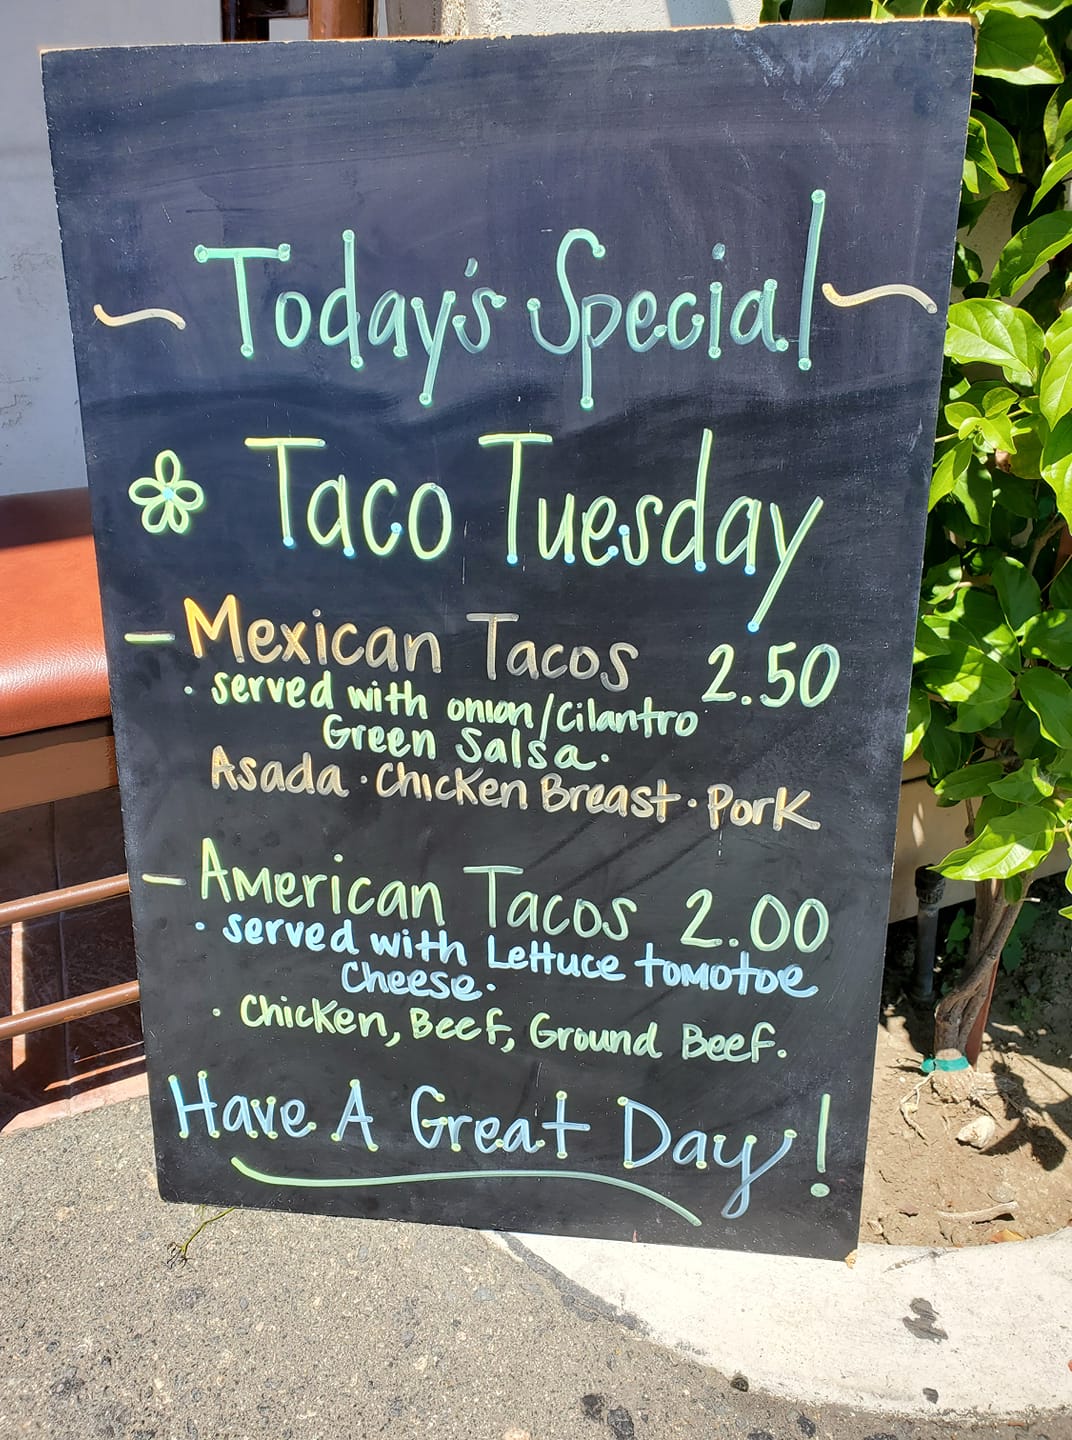 ~ Today's Special ~
Taco Tuesday
- Mexican Tacos 2.50
· served with onion/cilantro
Green Salsa.
Asada · Chicken Breast · Pork
- American Tacos 2.00
· served with Lettuce tomotoe
Cheese.
· Chicken, Beef, Ground Beef.
Have A Great Day!